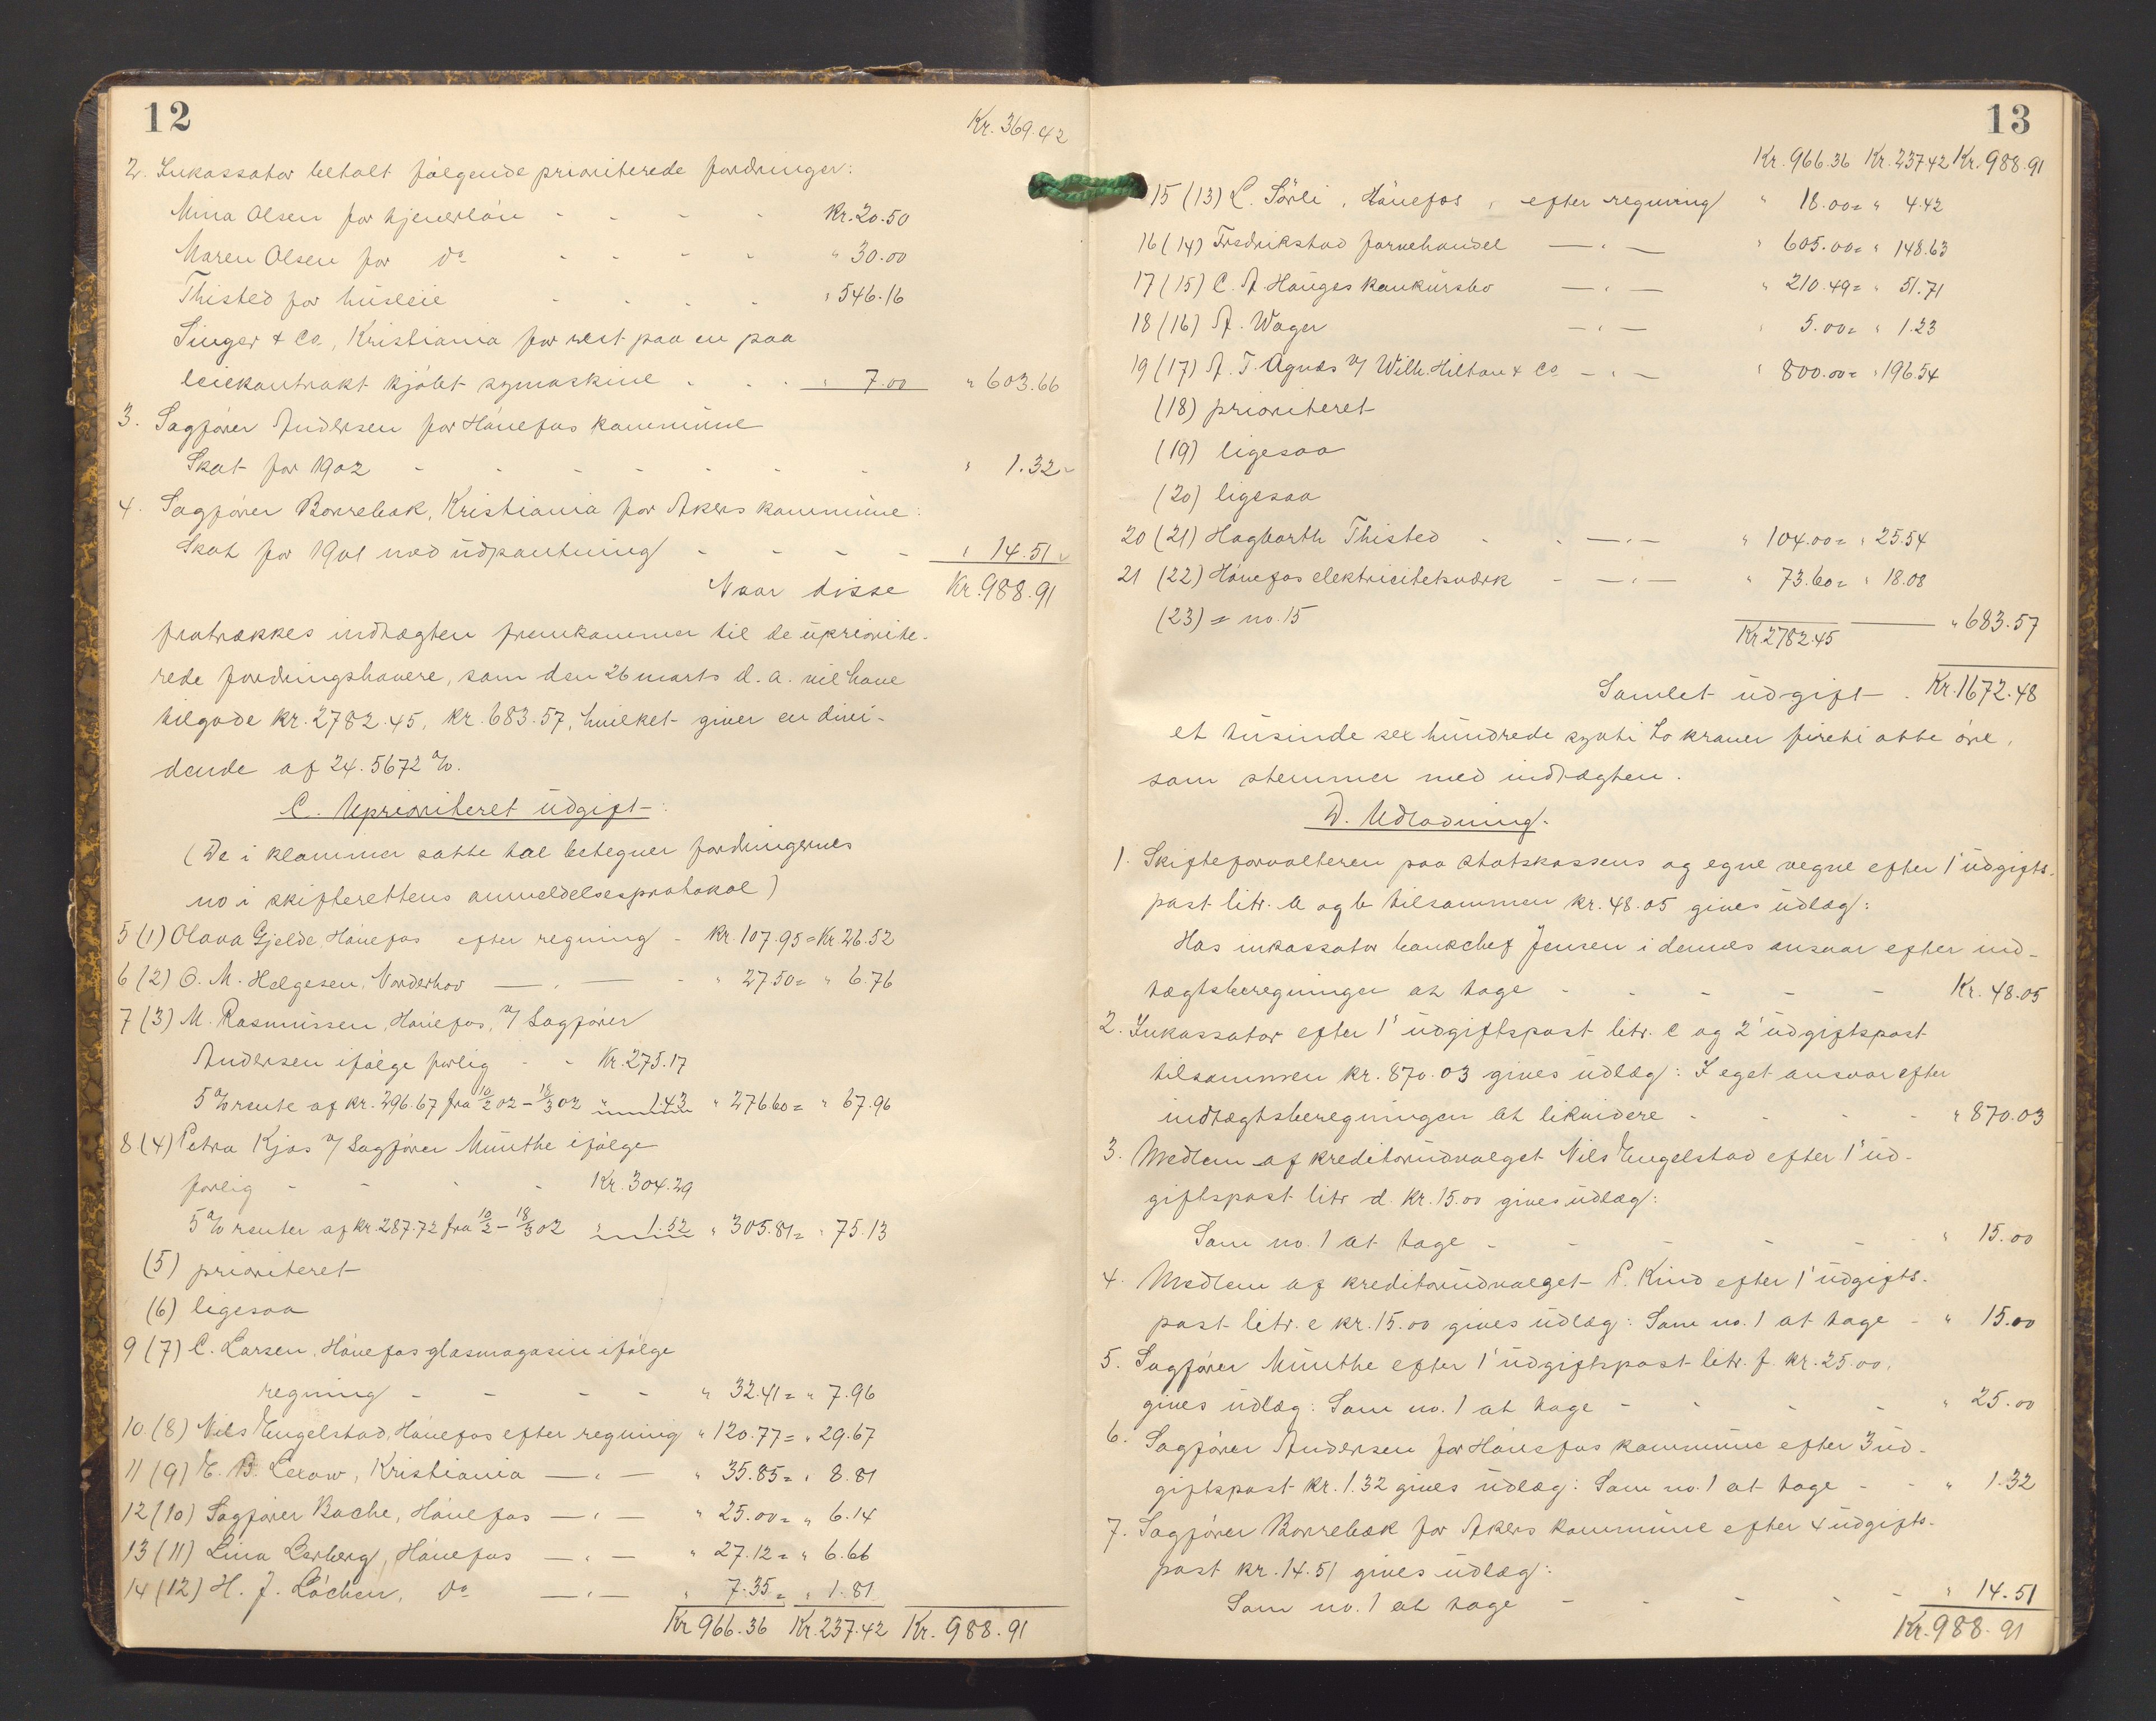 12
Kr. 369.42
2. Inkassator betalt følgende prioriterede fordringer:
Mina Olsen for tjenerløn - - - - Kr. 20.50
Maren Olsen for do - - - - " 30.00
Thisted for husleie - - - - " 546.16
Singer & Co, Kristiania for rest paa en paa
leiekontrakt kjøbt symaskine - - - " 7.00 " 603.66
3. Sagfører Andersen for Hønefos kommune
Skat for 1902 - - - - - - - " 1.32
4. Sagfører Borrebæk, Kristiania for Akers kommune:
Skat for 1901 med udpantning - - - - " 14.51
Naar disse Kr. 988.91
fratrækkes indtægten fremkommer til de upriorite-
rede fordringshavere, som den 26 marts d. a. vil have
tilgode kr. 2782.45, kr. 683.57, hvilket giver en divi-
dende af 24.5672 %.
C. Uprioriteret udgift:
(De i klammer satte tal betegner fordringernes
no i skifterettens anmeldelsesprotokol)
5 (1) Olava Gjelde, Hønefos efter regning - Kr. 107.95 = Kr 26.52
6 (2) O. M. Helgesen, Norderhov — " — - " 27.50 = " 6.76
7 (3) M. Rasmussen, Hønefos, v/ Sagfører
Andersen ifølge forlig - - Kr. 275.17
5 % rente af kr. 296.67 fra 10/2 02 - 18/3 02 " 1.43 " 276.60 = " 67.96
8 (4) Petra Kjos v/ Sagfører Munthe ifølge
forlig - - - - Kr. 304.29
5 % renter af kr. 287.72 fra 10/2 - 18/3 02 " 1.52 " 305.81 = " 75.13
(5) prioriteret
(6) ligesaa
9 (7) C. Larsen, Hønefos glasmagasin ifølge
regning - - - - " 32.41 = " 7.96
10 (8) Nils Engelstad, Hønefos efter regning " 120.77 = " 29.67
11 (9) E. B. Lerow, Kristiania — " — " 35.85 = " 8.81
12 (10) Sagfører Bache, Hønefos — " — " 25.00 = " 6.14
13 (11) Lina Lerberg, Hønefos — " — " 27.12 = " 6.66
14 (12) H. J. Løchen, do — " — " 7.35 = " 1.81
Kr 966.36 Kr. 237.42 Kr. 988.91
13
Kr. 966.36 Kr. 237.42 Kr. 988.91
15 (13) L. Sørli, Hønefos, efter regning " 18.00 = " 4.42
16 (14) Fredrikstad farvehandel — " — " 605.00 = " 148.63
17 (15) C. A. Hauges konkursbo — " — " 210.49 = " 51.71
18 (16) A. Wager — " — " 5.00 = " 1.23
19 (17) A. T. Agnæs v/ Wilh. Hilton & Co — " — " 800.00 = " 196.54
(18) prioriteret
(19) ligesaa
(20) ligesaa
20 (21) Hagbarth Thisted - - — " — " 104.00 = " 25.54
21 (22) Hønefos elektricitetsværk - — " — " 73.60 = " 18.08
(23) = no. 15
Kr. 2782.45 —— " 683.57
Samlet udgift - Kr. 1672.48
et tusinde sex hundrede sytti to kroner firti otte øre,
som stemmer med indtægten.
D. Udlodning.
1. Skifteforvalteren paa statskassens og egne vegne efter 1' udgifts-
post litr. a og b tilsammen kr. 48.05 gives udlæg:
Hos inkassator bankchef Jensen i dennes ansvar efter ind-
tægtsberegningen at tage - - - - - Kr. 48.05
2. Inkassator efter 1' udgiftspost litr. c og 2' udgiftspost
tilsammen kr. 870.03 gives udlæg: I eget ansvar efter
indtægtsberegningen at likvidere - - - - " 870.03
3. Medlem af kreditorudvalget Nils Engelstad efter 1' ud-
giftspost litr d. kr. 15.00 gives udlæg:
Som no. 1 at tage - - - - - " 15.00
4. Medlem af kreditorudvalget P. Kind efter 1' udgifts-
post litr. e kr. 15.00 gives udlæg: Som no. 1 at tage - " 15.00
5. Sagfører Munthe efter 1' udgiftspost litr. f. kr. 25.00,
gives udlæg: Som no. 1 at tage - - - - " 25.00
6. Sagfører Andersen for Hønefos kommune efter 3 ud-
giftspost kr. 1.32 gives udlæg: Som no. 1 at tage - - " 1.32
7. Sagfører Borrebæk for Akers kommune efter 4 udgifts-
post kr. 14.51 gives udlæg:
Som no. 1 at tage - - - - - " 14.51
Kr. 988.91